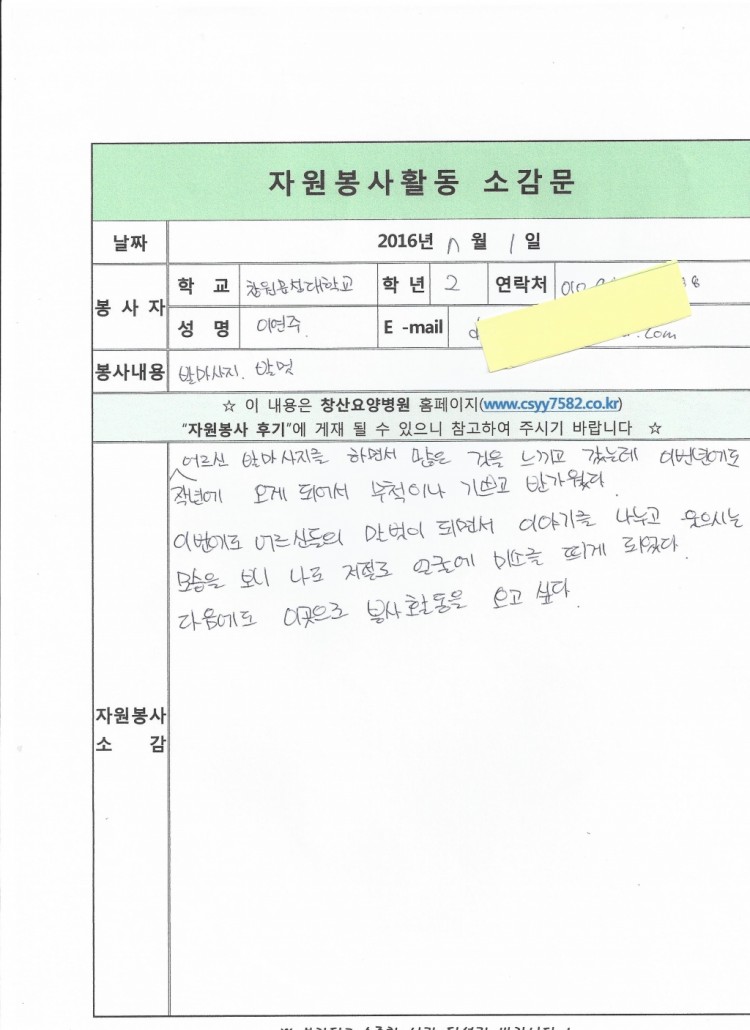 자원봉사활동 소감문
날짜 2016년 월 1 일
봉 사 자 학 교 창원문성대학교 학 년 2 연락처 010
성 명 이연주. E -mail .com
봉사내용 발마사지. 말벗
☆ 이 내용은 창산요양병원 홈페이지(www.csyy7582.co.kr)
"자원봉사 후기"에 게재 될 수 있으니 참고하여 주시기 바랍니다 ☆
자원봉사 소 감
작년에 어르신 발마사지를 하면서 많은 것을 느끼고 갔는데 이번년에도
오게 되어서 무척이나 기쁘고 반가웠다.
이번에도 어르신들의 말벗이 되면서 이야기를 나누고 웃으시는
모습을 보니 나도 저절로 얼굴에 미소를 띄게 되었다.
다음에도 이곳으로 봉사활동을 오고 싶다.